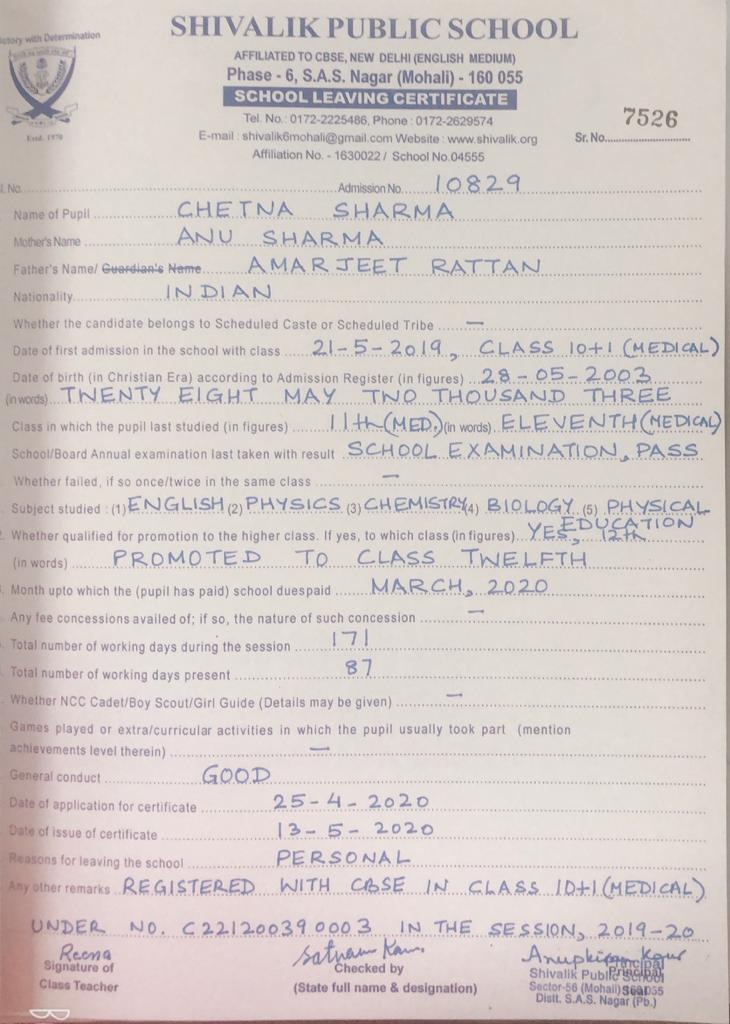 SHIVALIK PUBLIC SCHOOL
ictory with Determination
AFFILIATED TO CBSE, NEW DELHI (ENGLISH MEDIUM)
Phase - 6, S.A.S. Nagar (Mohali) - 160 055
SCHOOL LEAVING CERTIFICATE
Estd. 1970
Tel. No.: 0172-2225486, Phone : 0172-2629574
E-mail : shivalik6mohali@gmail.com Website : www.shivalik.org
Sr. No. 7526
Affiliation No. - 1630022 / School No.04555
. No. Admission No. 10829
Name of Pupil CHETNA SHARMA
Mother's Name ANU SHARMA
Father's Name/ Guardian's Name AMARJEET RATTAN
Nationality INDIAN
Whether the candidate belongs to Scheduled Caste or Scheduled Tribe —
Date of first admission in the school with class 21-5-2019, CLASS 10+1 (MEDICAL)
Date of birth (in Christian Era) according to Admission Register (in figures) 28-05-2003
(in words) TWENTY EIGHT MAY TWO THOUSAND THREE
Class in which the pupil last studied (in figures) 11th (MED.) (in words) ELEVENTH (MEDICAL)
School/Board Annual examination last taken with result SCHOOL EXAMINATION, PASS
Whether failed, if so once/twice in the same class —
Subject studied : (1) ENGLISH (2) PHYSICS (3) CHEMISTRY (4) BIOLOGY (5) PHYSICAL EDUCATION
Whether qualified for promotion to the higher class. If yes, to which class (in figures) YES, 12th
(in words) PROMOTED TO CLASS TWELFTH
Month upto which the (pupil has paid) school duespaid MARCH, 2020
Any fee concessions availed of; if so, the nature of such concession —
Total number of working days during the session 171
Total number of working days present 87
Whether NCC Cadet/Boy Scout/Girl Guide (Details may be given) —
Games played or extra/curricular activities in which the pupil usually took part (mention
achievements level therein) —
General conduct GOOD
Date of application for certificate 25-4-2020
Date of issue of certificate 13-5-2020
Reasons for leaving the school PERSONAL
Any other remarks REGISTERED WITH CBSE IN CLASS 10+1 (MEDICAL)
UNDER NO. C221200390003 IN THE SESSION, 2019-20
Reena
Signature of
Class Teacher
Satnam Kaur
Checked by
(State full name & designation)
Anupkiran Kaur
Principal
Principal
Shivalik Public School
Sector-56 (Mohali) 160055
Seal
Distt. S.A.S. Nagar (Pb.)